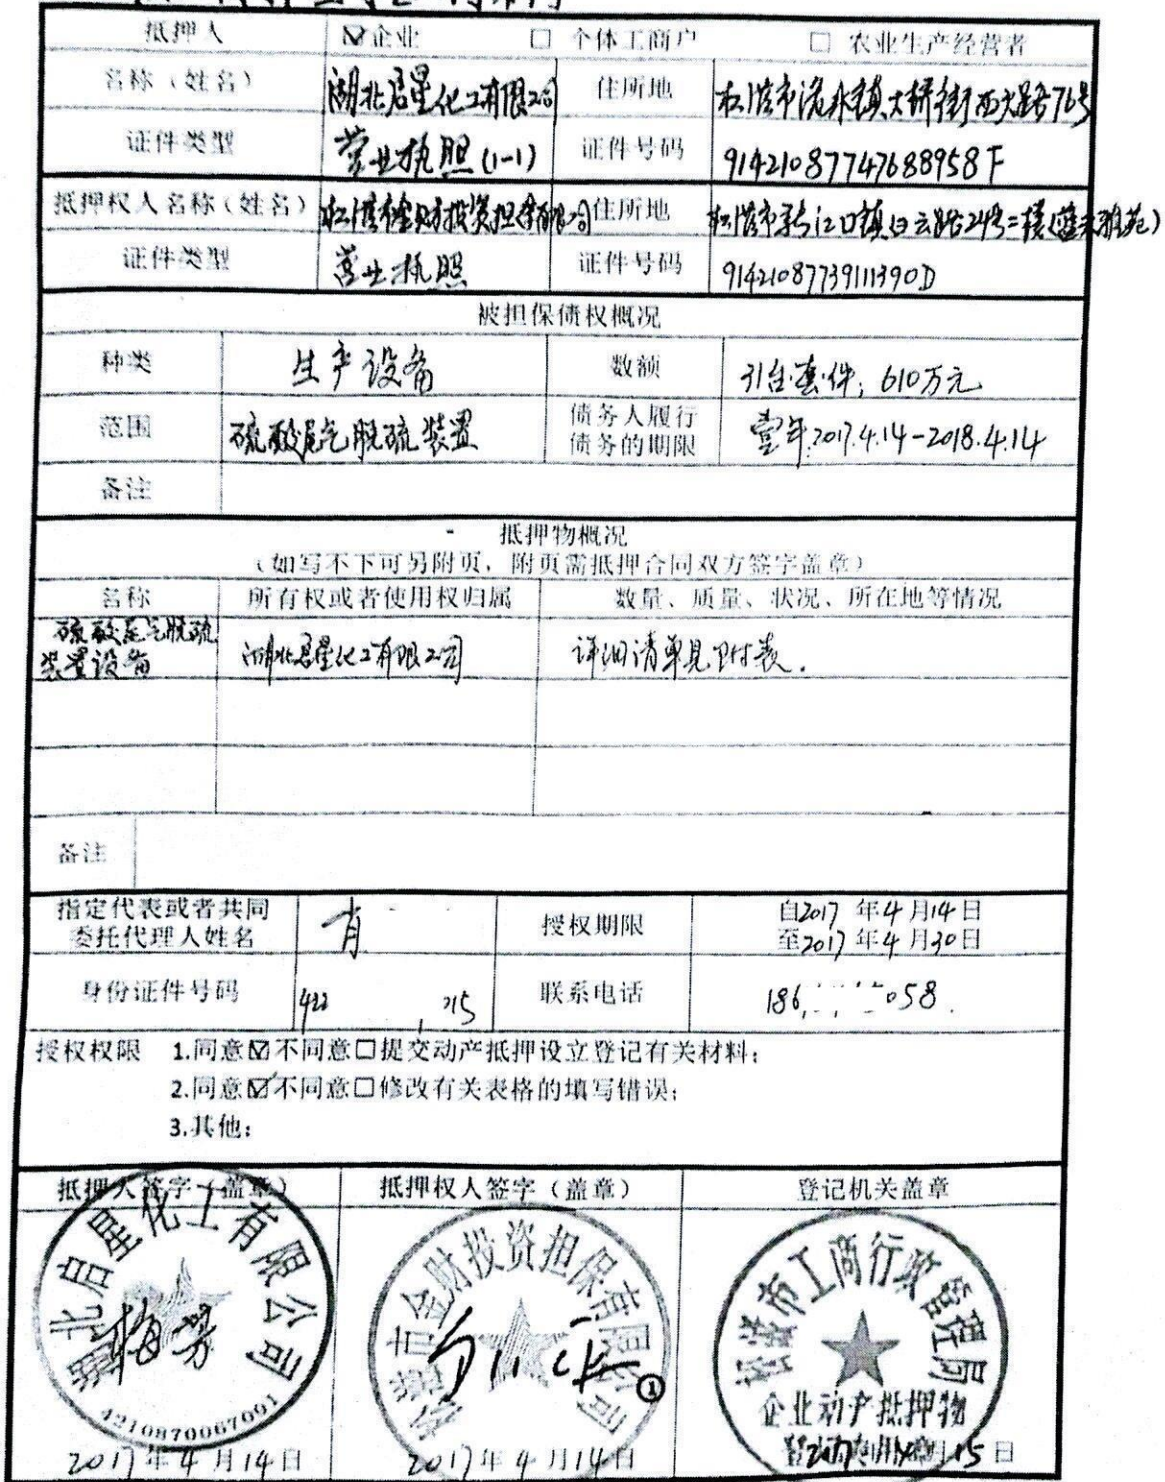 抵押人 ☑企业 □ 个体工商户 □ 农业生产经营者
名称（姓名） 湖北启星化工有限公司 住所地 松滋市洈水镇大桥街西大路76号
证件类型 营业执照(1-1) 证件号码 91421087747688958F
抵押权人名称（姓名） 松滋市金财投资担保有限公司 住所地 松滋市新江口镇白云路24号二楼
证件类型 营业执照 证件号码 91421087739111390D
被担保债权概况
种类 生产设备 数额 31台·套·件；610万元
范围 硫酸尾气脱硫装置 债务人履行
债务的期限 壹年.2017.4.14-2018.4.14
备注
抵押物概况
（如写不下可另附页，附页需抵押合同双方签字盖章）
名称 所有权或者使用权归属 数量、质量、状况、所在地等情况
硫酸尾气脱硫
装置设备 湖北启星化工有限公司 详细清单见附表.
备注
指定代表或者共同
委托代理人姓名 肖 授权期限 自2017 年4月14日
至2017 年4月30日
身份证件号码 422 215 联系电话 186 058.
授权权限 1.同意☑不同意□提交动产抵押设立登记有关材料；
2.同意☑不同意□修改有关表格的填写错误；
3.其他：
抵押人签字（盖章） 抵押权人签字（盖章） 登记机关盖章
湖北启星化工有限公司
梅芳
4210870067091
2017年4月14日
松滋市金财投资担保有限公司
①
2017年4月14日
松滋市工商行政管理局
企业动产抵押物
2017年4月15日